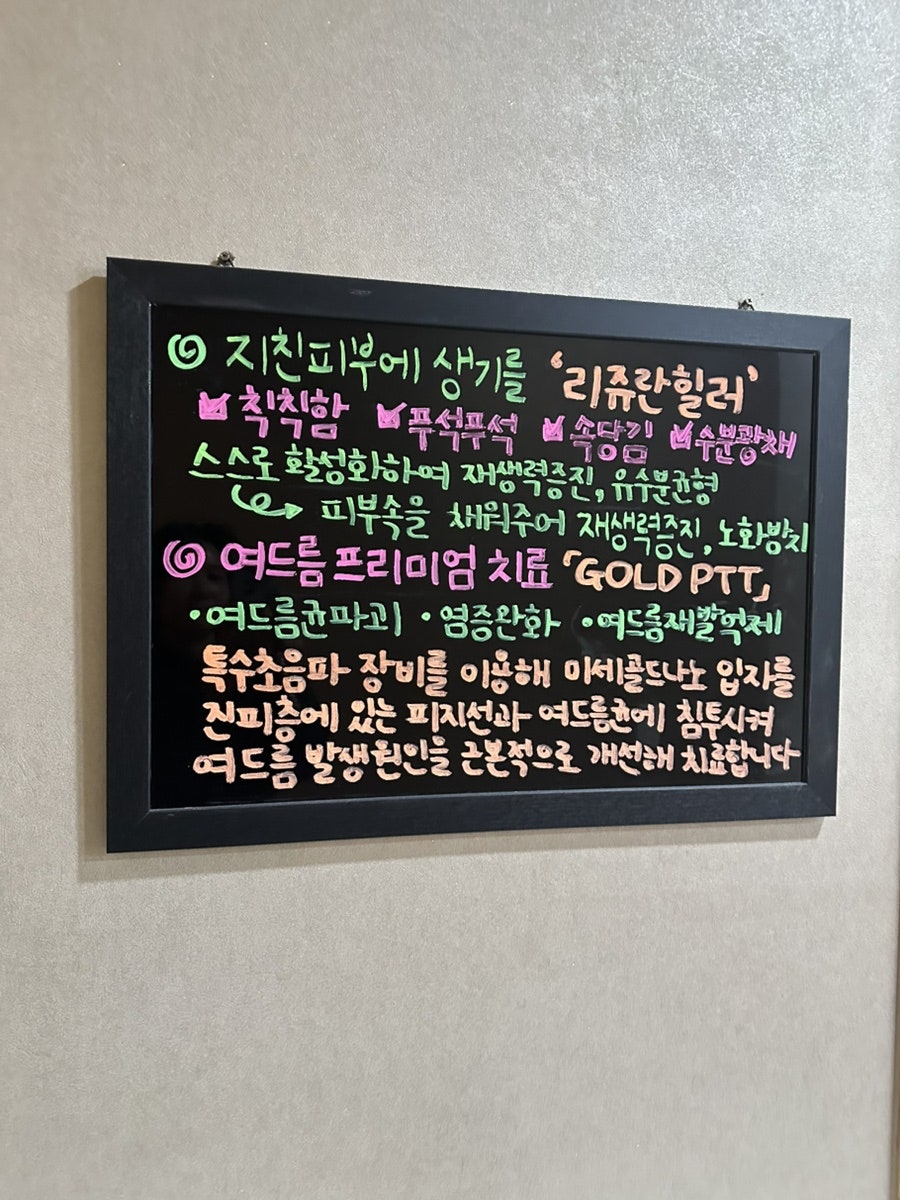 지친피부에 생기를 '리쥬란힐러'
칙칙함 푸석푸석 속당김 수분광채
스스로 활성화하여 재생력증진, 유수분균형
피부속을 채워주어 재생력증진, 노화방지
여드름 프리미엄 치료 「GOLD PTT」
•여드름균파괴 •염증완화 •여드름재발억제
특수초음파 장비를 이용해 미세골드나노 입자를
진피층에 있는 피지선과 여드름균에 침투시켜
여드름 발생원인을 근본적으로 개선해 치료합니다